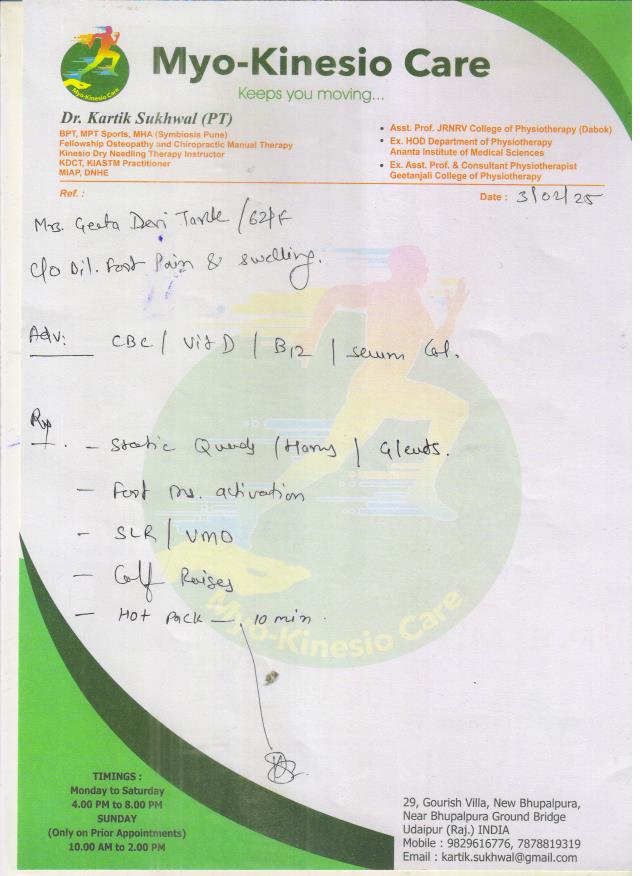 Myo-Kinesio Care
Myo-Kinesio Care
Keeps you moving...
Dr. Kartik Sukhwal (PT)
BPT, MPT Sports, MHA (Symbiosis Pune)
Fellowship Osteopathy and Chiropractic Manual Therapy
Kinesio Dry Needling Therapy Instructor
KDCT, KIASTM Practitioner
MIAP, DNHE
• Asst. Prof. JRNRV College of Physiotherapy (Dabok)
• Ex. HOD Department of Physiotherapy
Ananta Institute of Medical Sciences
• Ex. Asst. Prof. & Consultant Physiotherapist
Geetanjali College of Physiotherapy
Ref. :
Date : 3/02/25
Mrs. Geeta Devi / 62/F
c/o Bil. Foot Pain & swelling.
Adv: CBC / Vit D / B12 / serum Cal.
Rx
- Static Quads / Hams / Gluts.
- Foot ms. activation
- SLR / VMO
- Calf Raises
- Hot Pack - 10 min.
Myo-Kinesio Care
TIMINGS :
Monday to Saturday
4.00 PM to 8.00 PM
SUNDAY
(Only on Prior Appointments)
10.00 AM to 2.00 PM
29, Gourish Villa, New Bhupalpura,
Near Bhupalpura Ground Bridge
Udaipur (Raj.) INDIA
Mobile : 9829616776, 7878819319
Email : kartik.sukhwal@gmail.com